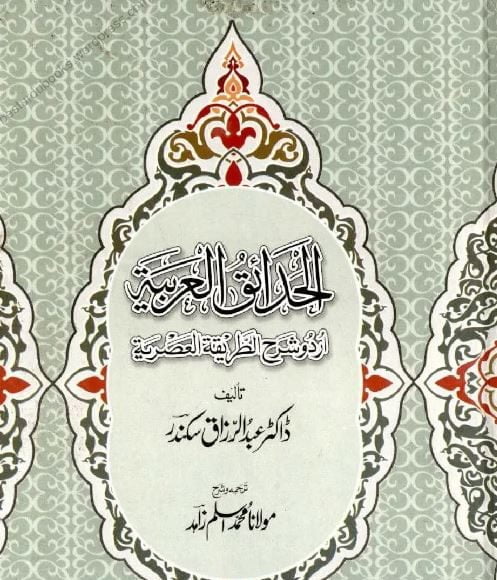 الحدائق العربية
اردو شرح الطريقة العصرية
تالیف
ڈاکٹر عبد الرزاق سکندر
ترجمہ و شرح
مولانا محمد اسلم زاہد